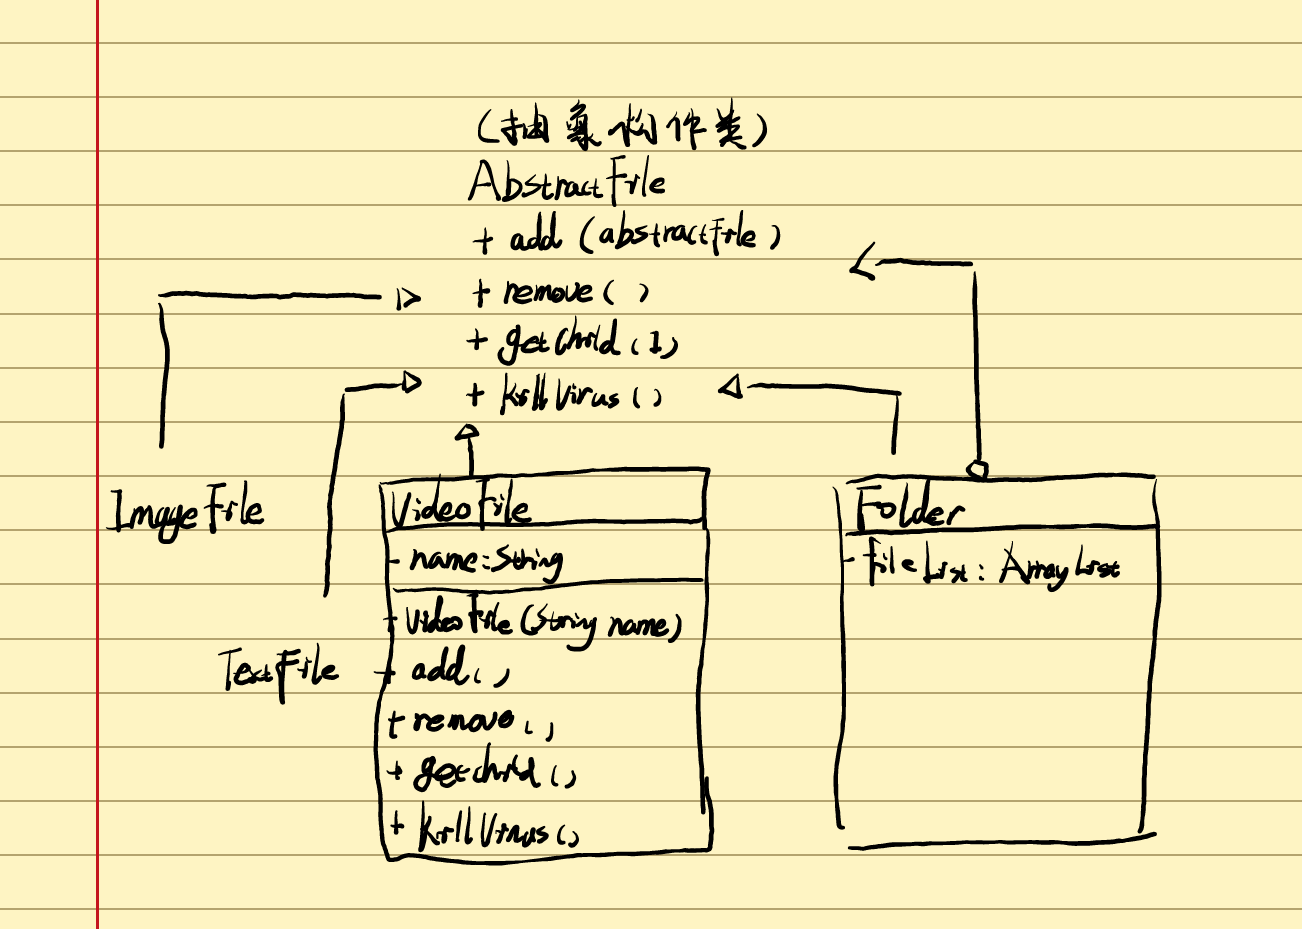 (抽象构件类)
AbstractFile
+ add (abstractFile)
+ remove ( )
+ getChild (i)
+ KillVirus ( )
ImageFile
TextFile
VideoFile
- name: String
+ VideoFile (String name)
+ add ( )
+ remove ( )
+ getchild ( )
+ KillVirus ( )
Folder
- FileList : ArrayList